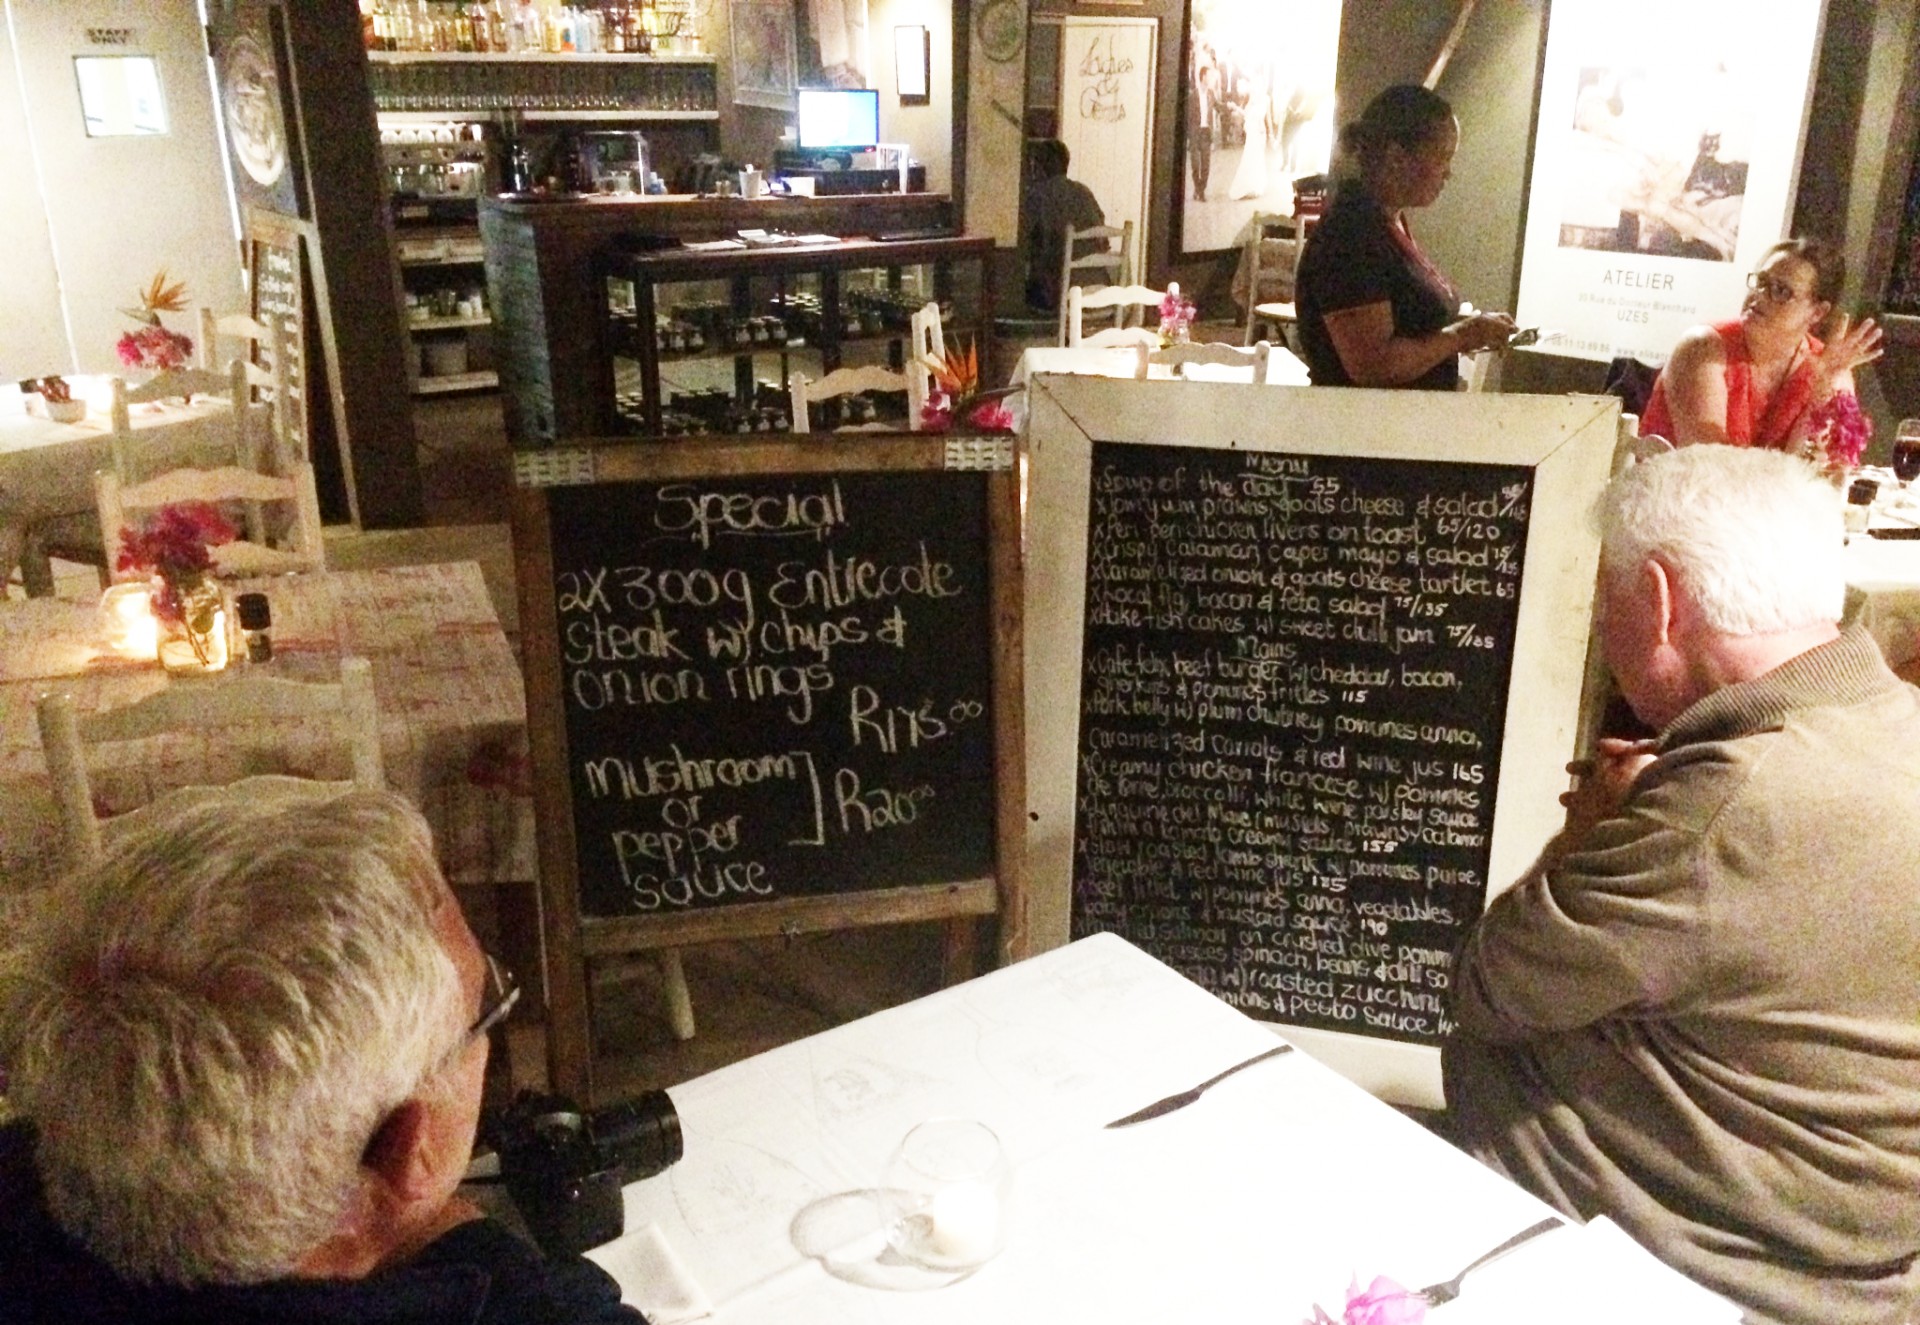 STAFF
ONLY
Ladies
&
Gents
ATELIER
UZES
Special
2x 300g Entrecote
Steak w/ chips &
onion rings
R175.00
mushroom
or
pepper
sauce
R20.00
Menu
x Soup of the day 55
x Tom yum prawns, goats cheese & salad
x Peri peri chicken livers on toast 65/120
x Crispy Calamari, caper mayo & salad
x Caramelized onion & goats cheese tartlet 65
x Local fig, bacon & feta salad 75/135
x Hake fish cakes w/ sweet chilli jam
Mains
x Cafe felix beef burger w/ cheddar, bacon,
gherkins & pommes frittes 115
x Pork belly w/ plum chutney pommes anna,
caramelized carrots & red wine jus 165
x Creamy chicken francese w/ pommes
broccolli, white wine parsley sauce
x Linguine del Mare (mussels, prawns, calamari
in a tomato cream) sauce 155
x Slow roasted lamb shank w/ pommes puree,
vegetable & red wine jus 185
x Beef fillet w/ pommes anna, vegetables,
baby onions & mustard sauce 190
salmon on crushed olive pomm
spinach, beans & dill sa
w/ roasted zucchini,
onions & pesto sauce